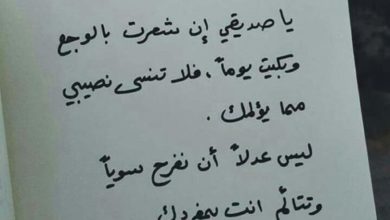 يا صديقي إن شعرت بالوجع
وبكيت يوماً ، فلا تنسى نصيبي
مما يؤلمك .
ليس عدلاً أن نفرح سوياً
وتتألم انت بمفردك